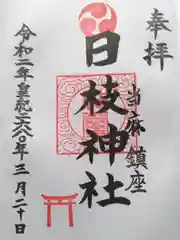 奉拝
当麻鎮座
日枝神社
令和二年皇紀二六八〇年三月二十日